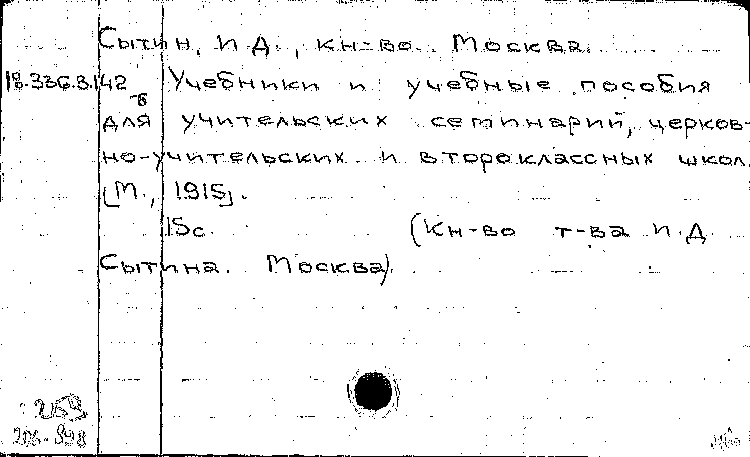 Сытин, И.Д., кн-во. Москва.
18.336.3.142 Учебники и учебные пособия
для учительских семинарий, церков-
но-учительских и второклассных школ.
[М., 1915].
15с. (Кн-во т-ва И.Д.
Сытина. Москва).